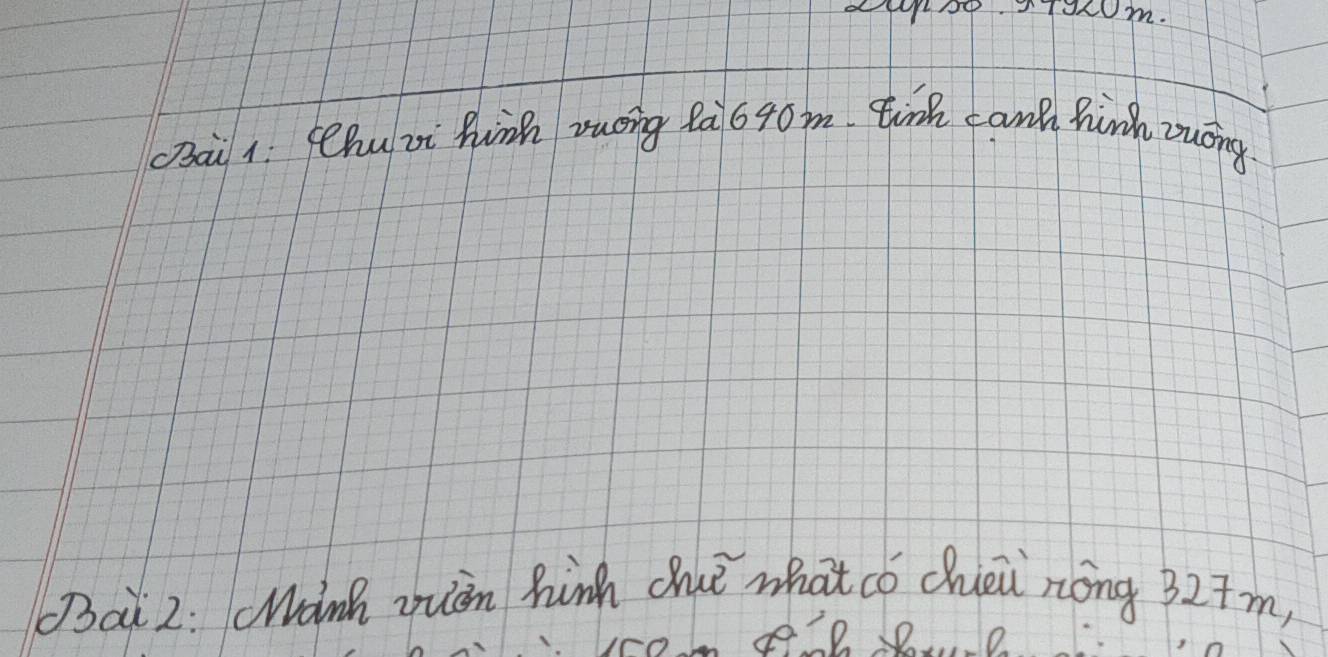 Bài 1: Chu vi hình vuông là 640m. Tính cạnh hình vuông.
Bài 2: Mảnh vườn hình chữ nhật có chiều rộng 327m,